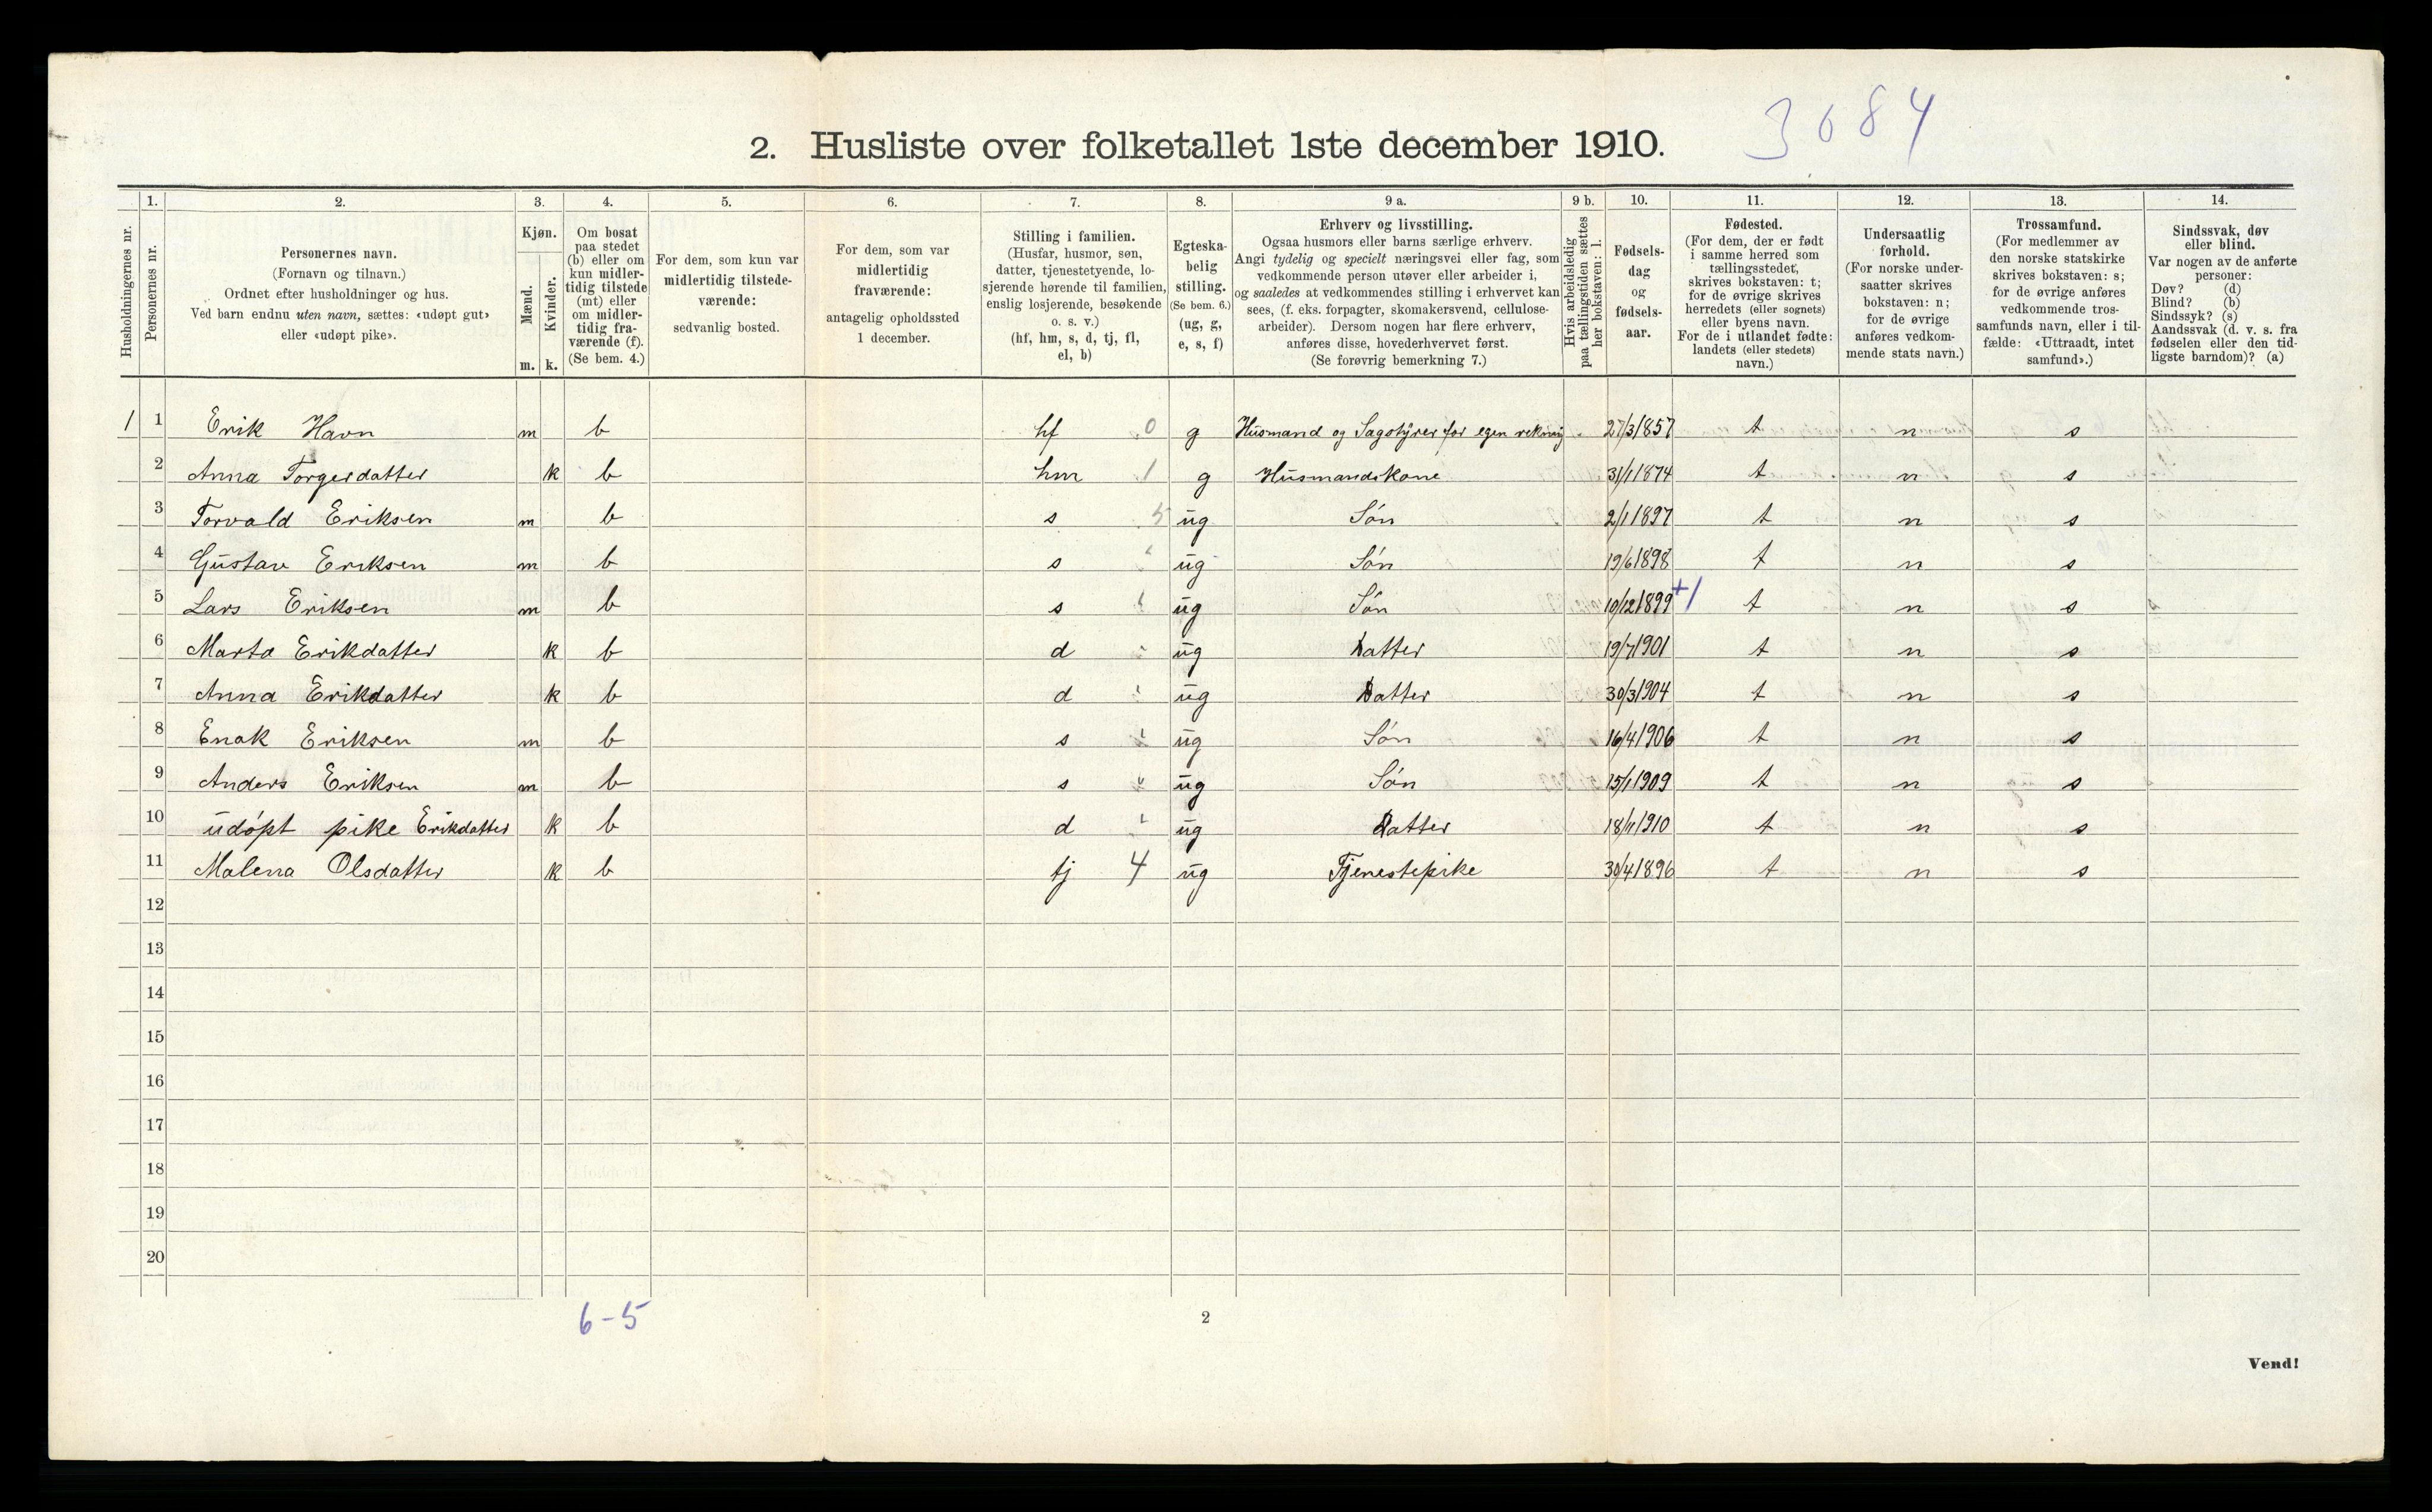 3684
2. Husliste over folketallet 1ste december 1910.
Husholdningernes nr.
1.
Personernes nr.
2.
Personernes navn.
(Fornavn og tilnavn.)
Ordnet efter husholdninger og hus.
Ved barn endnu uten navn, sættes: «udøpt gut»
eller «udøpt pike».
3.
Kjøn.
Mænd.
Kvinder.
m. k.
4.
Om bosat
paa stedet
(b) eller om
kun midler-
tidig tilstede
(mt) eller
om midler-
tidig fra-
værende (f).
(Se bem. 4.)
5.
For dem, som kun var
midlertidig tilstede-
værende:
sedvanlig bosted.
6.
For dem, som var
midlertidig
fraværende:
antagelig opholdssted
1 december.
7.
Stilling i familien.
(Husfar, husmor, søn,
datter, tjenestetyende, lo-
sjerende hørende til familien,
enslig losjerende, besøkende
o. s. v.)
(hf, hm, s, d, tj, fl,
el, b)
8.
Egteska-
belig
stilling.
(Se bem. 6.)
(ug, g,
e, s, f)
9 a.
Erhverv og livsstilling.
Ogsaa husmors eller barns særlige erhverv.
Angi tydelig og specielt næringsvei eller fag, som
vedkommende person utøver eller arbeider i,
og saaledes at vedkommendes stilling i erhvervet kan
sees, (f. eks. forpagter, skomakersvend, cellulose-
arbeider). Dersom nogen har flere erhverv,
anføres disse, hovederhvervet først.
(Se forøvrig bemerkning 7.)
9 b.
Hvis arbeidsledig
paa tællingstiden sættes
her bokstaven: l.
10.
Fødsels-
dag
og
fødsels-
aar.
11.
Fødested.
(For dem, der er født
i samme herred som
tællingsstedet,
skrives bokstaven: t;
for de øvrige skrives
herredets (eller sognets)
eller byens navn.
For de i utlandet fødte:
landets (eller stedets)
navn.)
12.
Undersaatlig
forhold.
(For norske under-
saatter skrives
bokstaven: n;
for de øvrige
anføres vedkom-
mende stats navn.)
13.
Trossamfund.
(For medlemmer av
den norske statskirke
skrives bokstaven: s;
for de øvrige anføres
vedkommende tros-
samfunds navn, eller i til-
fælde: «Uttraadt, intet
samfund».)
14.
Sindssvak, døv
eller blind.
Var nogen av de anførte
personer:
Døv? (d)
Blind? (b)
Sindssyk? (s)
Aandssvak (d. v. s. fra
fødselen eller den tid-
ligste barndom)? (a)
1 1 Erik Havn m b hf 0 g Husmand og Sagstyrer for egen rekning 27/3 1857 t n s
2 Anna Torgerdatter k b hm 1 g Husmandskone 31/1 1874 t n s
3 Torvald Eriksen m b s 5 ug Søn 2/1 1897 t n s
4 Gustav Eriksen m b s ug Søn 19/6 1898 t n s
5 Lars Eriksen m b s ug Søn 10/12 1899 +1 t n s
6 Marta Erikdatter k b d ug Datter 19/7 1901 t n s
7 Anna Erikdatter k b d ug Datter 30/3 1904 t n s
8 Enok Eriksen m b s ug Søn 16/4 1906 t n s
9 Anders Eriksen m b s ug Søn 15/1 1909 t n s
10 udøpt pike Erikdatter k b d ug Datter 18/11 1910 t n s
11 Malena Olsdatter k b tj 4 ug Tjenestepike 30/4 1896 t n s
12
13
14
15
16
17
18
19
20
6-5
2
Vend!